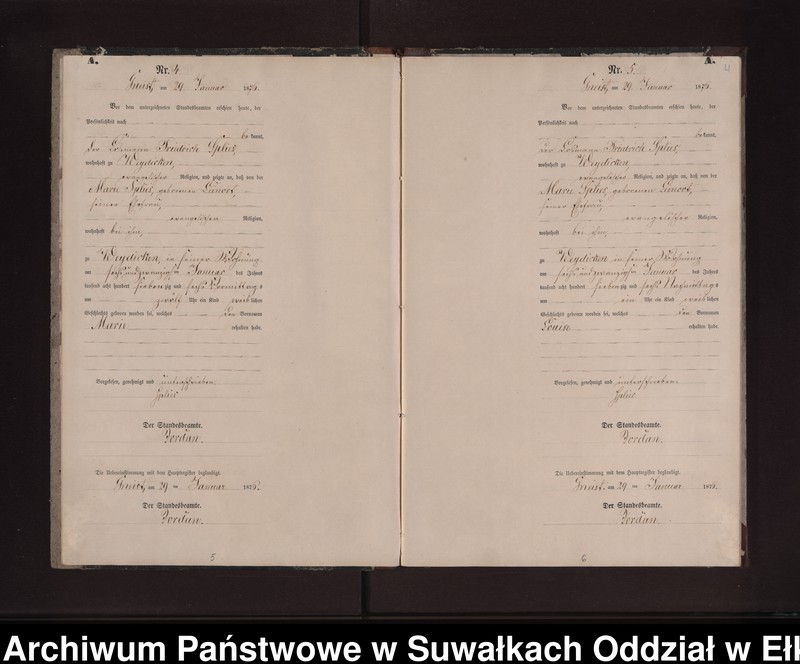 A.
Nr. 4
am 29 Januar 1876.
Vor dem unterzeichneten Standesbeamten erschien heute, der
Persönlichkeit nach
bekannt,
der Friedrich Splies,
wohnhaft zu Weydicken,
evangelischer Religion, und zeigte an, daß von der
Marie Splies, geborenen
seiner Ehefrau,
evangelischen Religion,
wohnhaft bei ihm,
zu Weydicken, in seiner Wohnung
am sechsundzwanzigsten Januar des Jahres
tausend acht hundert siebenzig und sechs Vormittags
um zwölf Uhr ein Kind weiblichen
Geschlechts geboren worden sei, welches den Vornamen
Marie erhalten habe.
Vorgelesen, genehmigt und unterschrieben.
Splies
Der Standesbeamte.
Jordan.
Die Uebereinstimmung mit dem Hauptregister beglaubigt.
am 29 ten Januar 1876.
Der Standesbeamte.
Jordan.
5
A.
4
Nr. 5
am 29 Januar 1876.
Vor dem unterzeichneten Standesbeamten erschien heute, der
Persönlichkeit nach
bekannt,
der Friedrich Splies,
wohnhaft zu Weydicken,
evangelischer Religion, und zeigte an, daß von der
Marie Splies, geborenen
seiner Ehefrau,
evangelischer Religion,
wohnhaft bei ihm,
zu Weydicken in seiner Wohnung
am sechsundzwanzigsten Januar des Jahres
tausend acht hundert siebenzig und sechs Nachmittags
um ein Uhr ein Kind weiblichen
Geschlechts geboren worden sei, welches den Vornamen
Louise erhalten habe.
Vorgelesen, genehmigt und unterschrieben.
Splies
Der Standesbeamte.
Jordan.
Die Uebereinstimmung mit dem Hauptregister beglaubigt.
am 29 ten Januar 1876.
Der Standesbeamte.
Jordan.
6
Archiwum Państwowe w Suwałkach Oddział w Ełk